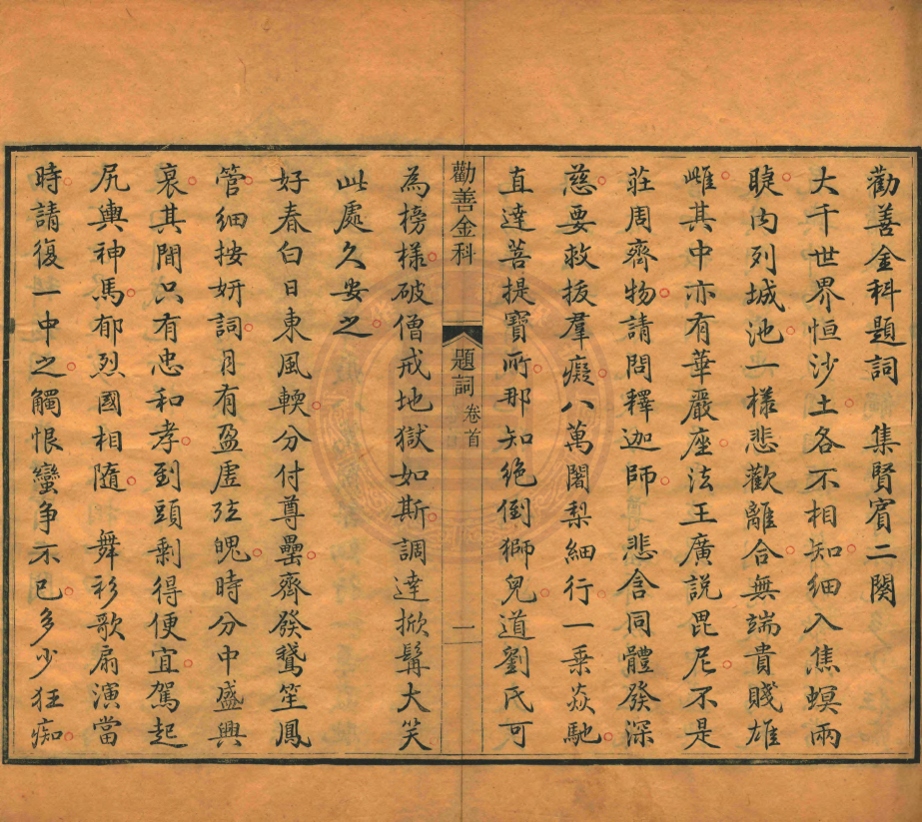 勸善金科題詞 集賢賓二闋
大千世界恒沙土各不相知細入焦螟兩
睫内列城池一樣悲歡離合無端貴賤雄
雌其中亦有華嚴座法王廣說毘尼不是
莊周齊物請問釋迦師 悲含同體發深
慈要救拔羣癡八萬闍梨細行一乗焱馳
直達菩提寶所那知絶倒獅兒道劉氏可
勸善金科 題詞 卷首 一
為榜樣破僧戒地獄如斯調達掀髯大笑
此處久安之
好春白日東風輭分付尊罍齊發鵞笙鳳
管細按妍詞月有盈虚弦魄時分中盛興
衰其間只有忠和孝到頭剩得便宜駕起
尻輿神馬郁烈國相隨 舞衫歌扇演當
時請復一中之觸恨蠻争不已多少狂痴